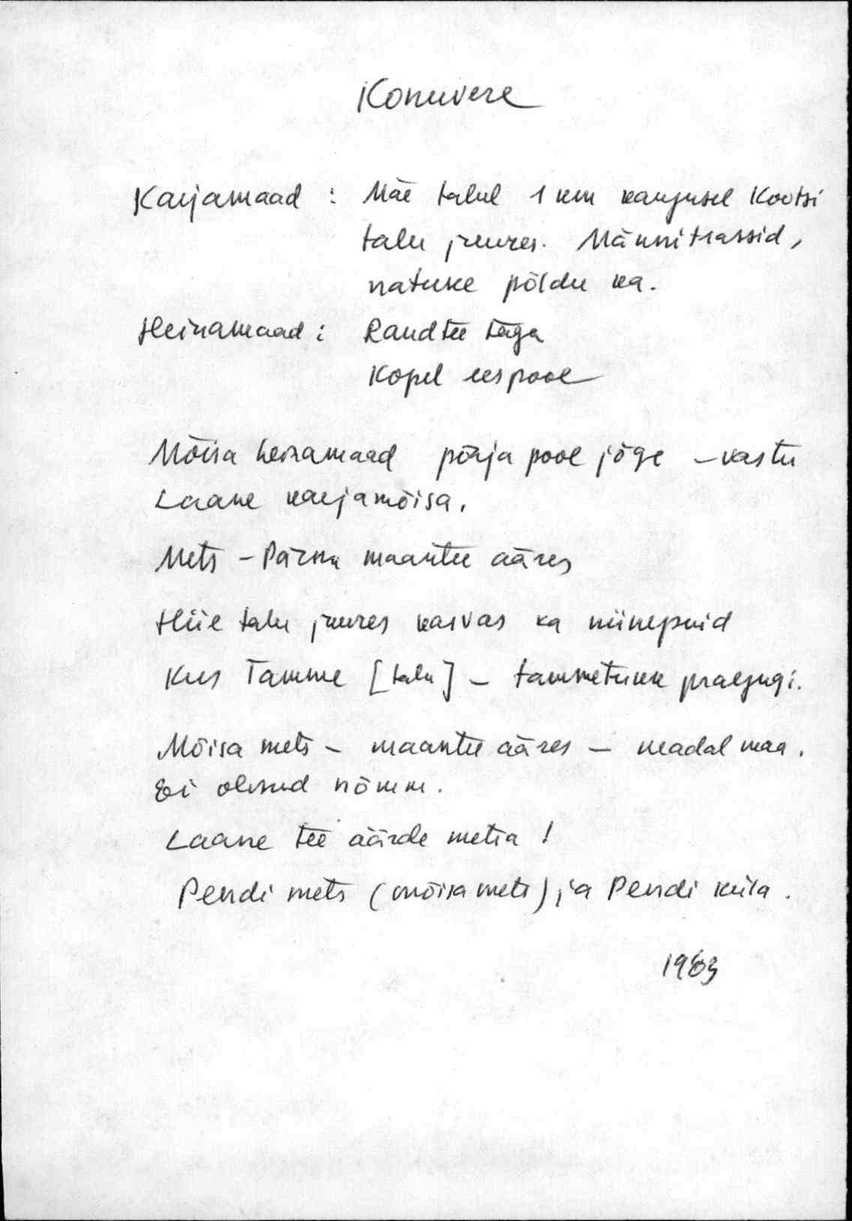 Konuvere
Karjamaad : Mäe talul 1 km kaugusel Kootsi
talu juures. Männitrassid,
natuke põldu ka.
Heinamaad : Raudtee taga
Kopel eespool
Mõisa heinamaad põhja pool jõge – vastu
Laane karjamõisa.
Mets – Pärnu maantee ääres
Hiie talu juures kasvas ka niinepuid
Kus Tamme [talu] – tammetukk praegugi.
Mõisa mets – maantee ääres – madal maa.
Ei olnud nõmm.
Laane tee äärde metsa !
Pendi mets (mõisa mets) ja Pendi küla.
1983